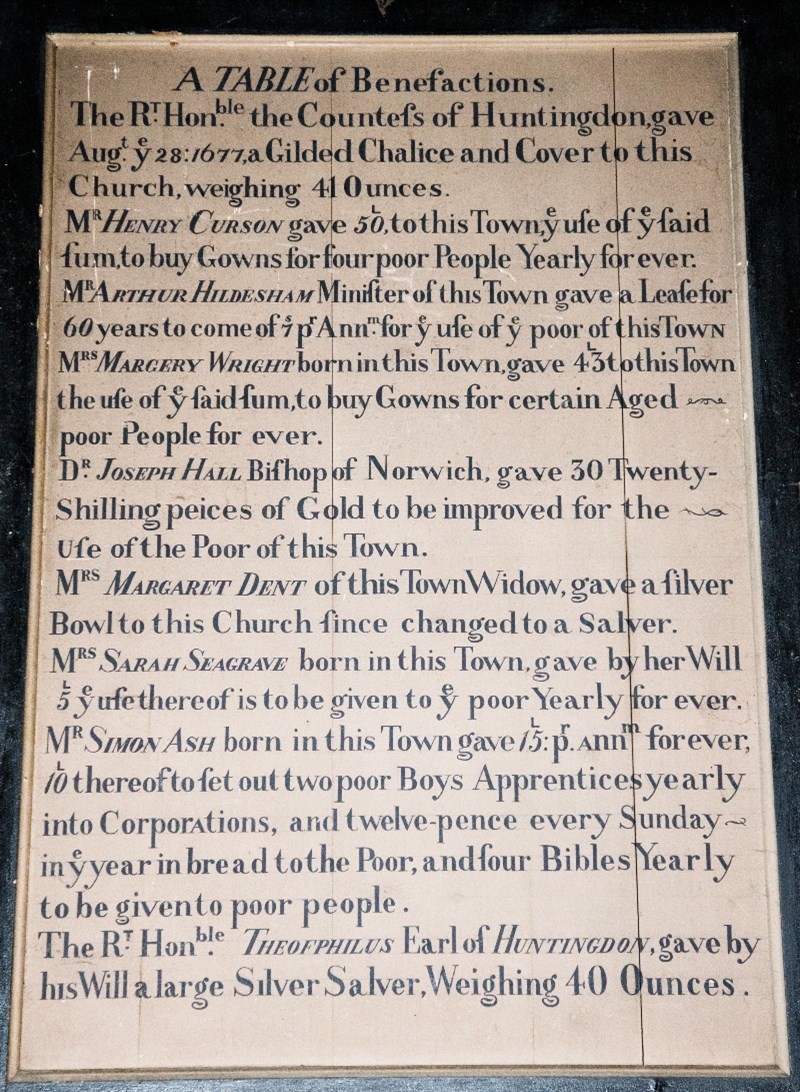 A TABLE of Benefactions.
The Rᵀ· Hon.ᵇˡᵉ the Counteſs of Huntingdon, gave
Augᵗ. yᵉ 28: 1677, a Gilded Chalice and Cover to this
Church, weighing 41 Ounces.
Mᴿ HENRY CURSON gave 50ᴸ, to this Town, yᵉ uſe of yᵉ ſaid
ſum, to buy Gowns for four poor People Yearly for ever.
Mᴿ ARTHUR HILDESHAM Miniſter of this Town gave a Leaſe for
60 years to come of pʳ Annᵐ· for yᵉ uſe of yᵉ poor of this TOWN
Mᴿˢ MARGERY WRIGHT born in this Town, gave 43ᴸ to this Town
the uſe of yᵉ ſaid ſum, to buy Gowns for certain Aged
poor People for ever.
Dᴿ· JOSEPH HALL Biſhop of Norwich, gave 30 Twenty-
Shilling peices of Gold to be improved for the
Uſe of the Poor of this Town.
Mᴿˢ MARGARET DENT of this Town Widow, gave a ſilver
Bowl to this Church ſince changed to a Salver.
Mᴿˢ SARAH SEAGRAVE born in this Town, gave by her Will
5ᴸ yᵉ uſe thereof is to be given to yᵉ poor Yearly for ever.
Mᴿ SIMON ASH born in this Town gave 15ᴸ: pʳ. Annᵐ for ever,
10ᴸ thereof to ſet out two poor Boys Apprentices yearly
into Corporations, and twelve-pence every Sunday
in yᵉ year in bread to the Poor, and four Bibles Yearly
to be given to poor people.
The Rᵀ· Honᵇˡ.ᵉ THEOFPHILUS Earl of HUNTINGDON, gave by
his Will a large Silver Salver, Weighing 40 Ounces.